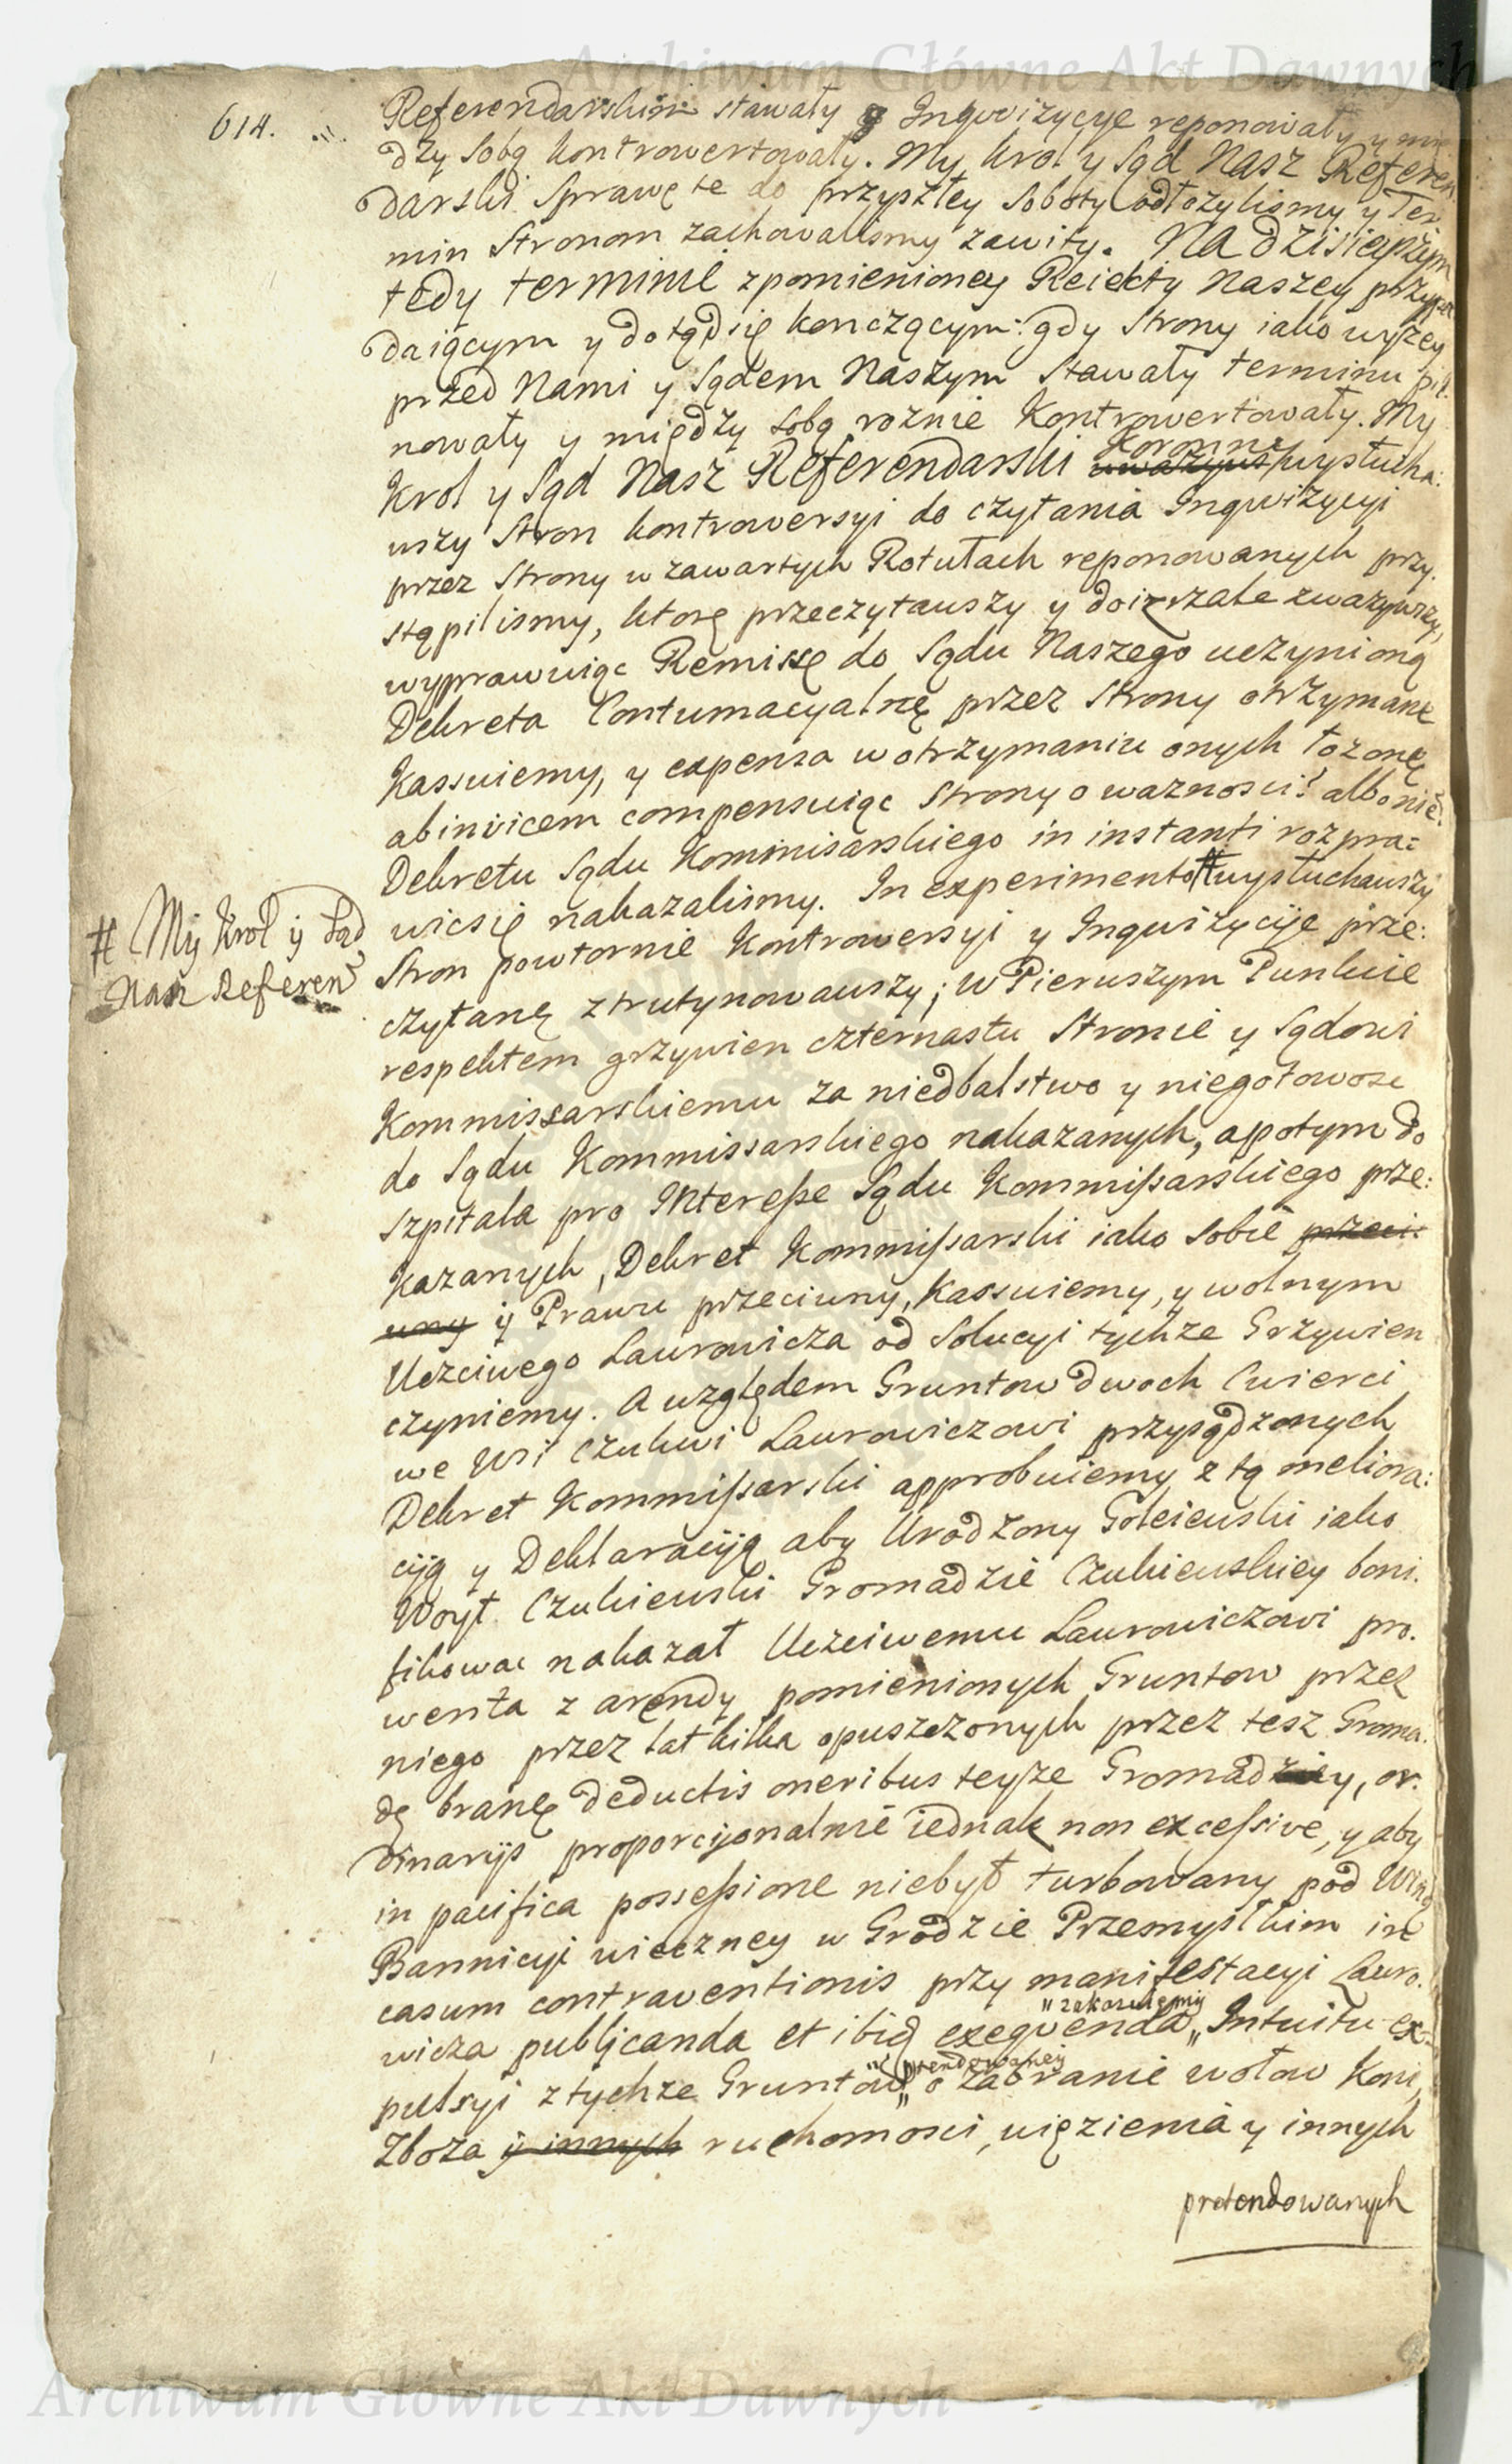 Archiwum Główne Akt Dawnych
614.
Referendarskim stawały y Inqwizycye reponowały y mie
dzy sobą kontrowertowały. My Krol y Sąd Nasz Referen
darski Sprawę te do przyszłey Soboty odłozylismy y Ter
min Stronom zachowalismy zawity. Na dzisieyszym
tedy terminie z pomienioney Reiekty Naszey przypa
daiącym y dotąd się konczącym: gdy Strony iako wyzey
przed Nami y Sądem Naszym Stawały terminu pil
nowały y między sobą roznie Kontrowertowały. My
Koronny
Krol y Sąd Nasz Referendarski uwazywszy wysłucha:
wszy Stron kontrowersyi do czytania Inqwizycyi
przez Strony w zawartych Rotułach reponowanych przy.
stąpilismy, ktorę przeczytawszy y doizrzale zwazywszy,
wyprawuiąc Remissę do Sądu Naszego uczynioną
Dekreta Contumacyalnę przez Strony otrzymane
Kassuiemy, y expensa w otrzymaniu onych łozonę
abinvicem compensuiąc Strony o waznosci? albo nie?
Dekretu Sądu Kommisarskiego in instanti rozpra=
wic się nakazalismy. In experimento # wysłuchawszy
# My Krol ÿ Sąd
Nasz Referen
Stron powtornie Kontrowersyi y Inqwizycyie prze:
czytanę ztrutynowawszy; w Pierwszym Punkcie
respektem grzywien czternastu Stronie y Sądowi
Kommissarskiemu za niedbalstwo y niegotowosc
do Sądu Kommissarskiego nakazanych, a potym do
Szpitala pro Interesse Sądu Kommissarskiego prze:
kazanych, Dekret Kommissarski iako sobie przeci:
wny ÿ Prawu przeciwny, Kassuiemy, y wolnym
Uczciwego Laurowicza od Solucyi tychze Grzywien
czyniemy. A względem Gruntow dwoch Cwierci
we Wsi Czukwi Laurowiczowi przysądzonych
Dekret Kommissarski approbuiemy z tą meliora:
cyą y Deklaracyą aby Urodzony Goleiewski iako
Woyt Czukiewski Gromadzie Czukiewskiey boni.
fikowac nakazał Uczciwemu Laurowiczowi pro.
wenta z arendy pomienionych Gruntow przez
niego przez lat kilka opuszczonych przez tesz Groma.
dę branę deductis oneribus teyze Gromadziey, or.
dinariis proporcyonalnie iednak non excessive, y aby
in pacifica possessione niebył turbowany pod Winą
Bannicyi wieczney w Grodzie Przemyslkim in
casum contraventionis przy manifestacyi Lauro.
" zakazuiemy
wicza publicanda et ibid exeqvenda " Intuitu ex=
pretendowaney
pulsyi z tychze Gruntow " o zabranie wołow Koni,
Zboza ÿ innych ruchomosci, więzienia y innych
pretendowanych
Archiwum Główne Akt Dawnych